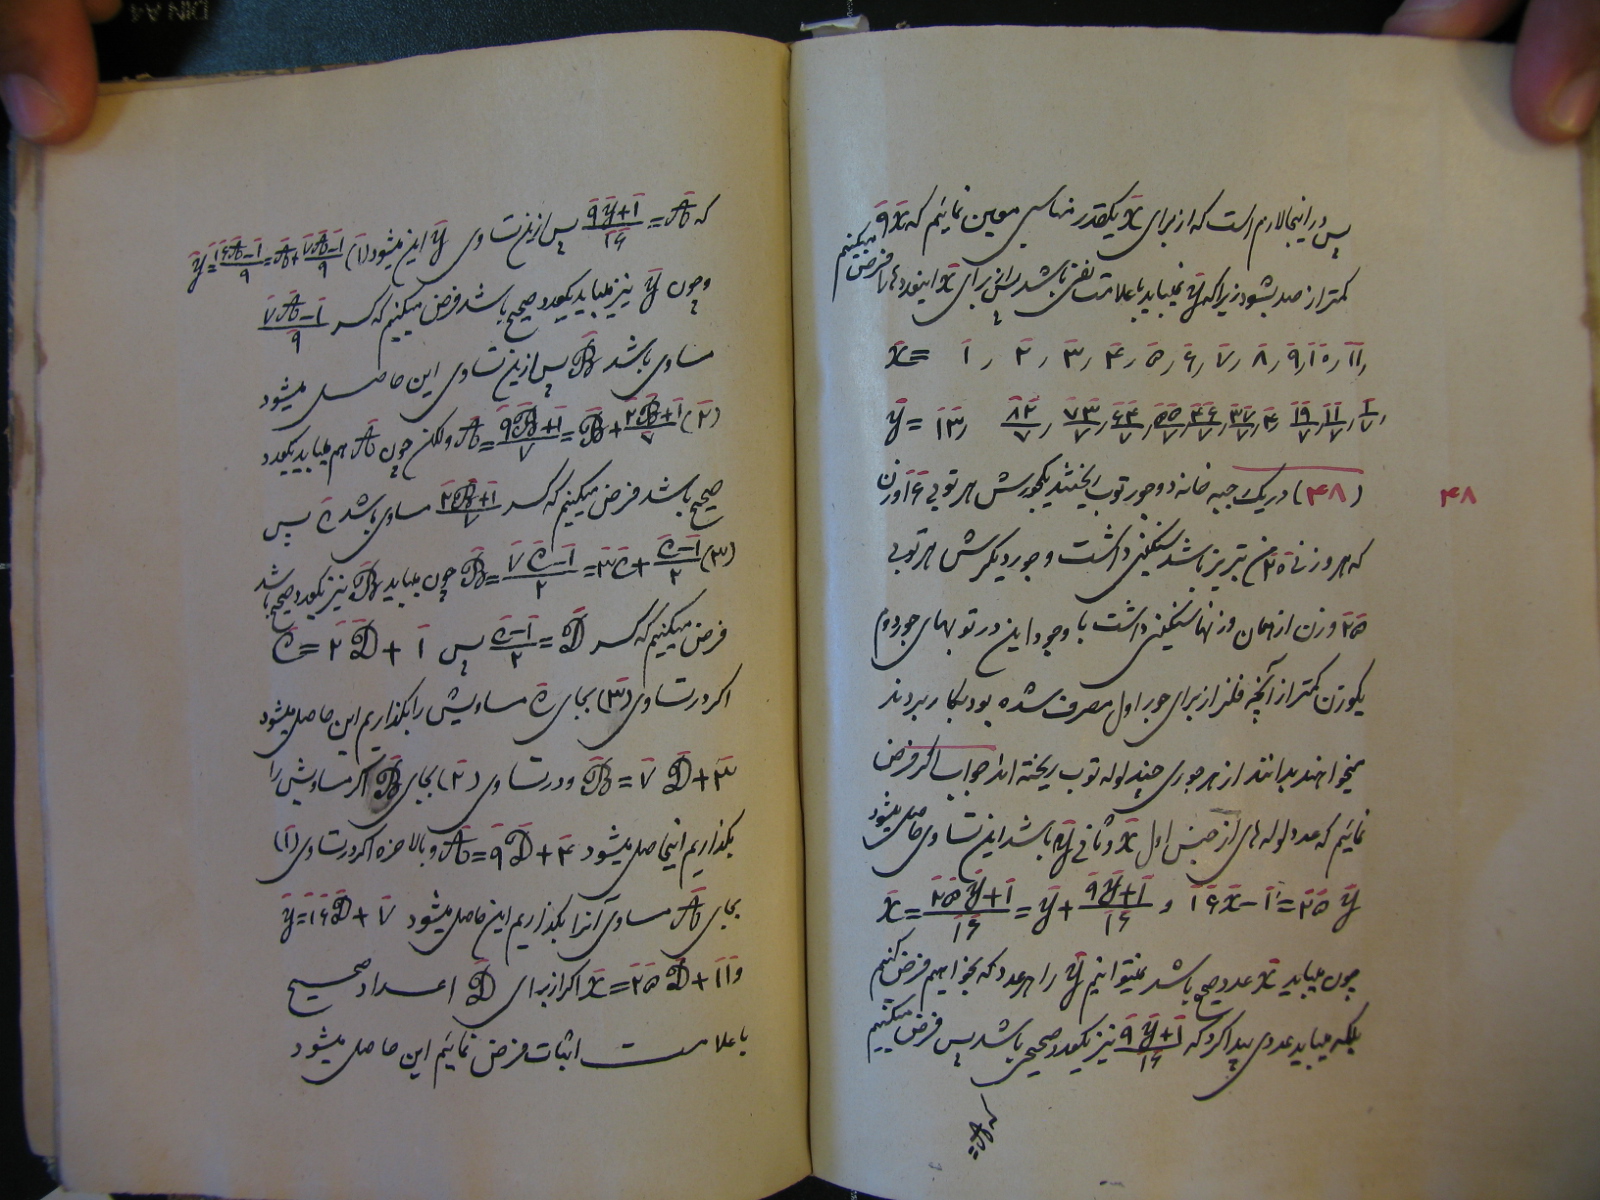 پس در اینجا لازم است که از برای x یکقدر متناسبی معین نمائیم که ۹x
کمتر از صد بشود زیرا که y نمیباید با علامت نفی باشد پس از برای x اینعددها را فرض میکنیم
x = ۱, ۲, ۳, ۴, ۵, ۶, ۷, ۸, ۹, ۱۰, ۱۱,
y = ۱۳, ۸۲/۷, ۷۳/۷, ۶۴/۷, ۵۵/۷, ۴۶/۷, ۳۷/۷, ۴, ۱۹/۷, ۱۱/۷, ۱/۷,
۴۸
(۴۸) در یک جبه خانه دو جور توپ ریختند یکجورش هر توپی ۱۶ وزن
که هر وزنی ۲۵ من تبریز باشد سنگینی داشت و جور دیگرش هر توپی
۲۵ وزن از همان وزنها سنگینی داشت با وجود این در توپهای جور دوم
یکوزن کمتر از آنچه فلز از برای جور اول مصرف شده بود بکار بردند
میخواهند بدانند از هر جوری چند لوله توپ ریخته اند جواب اگر فرض
نمائیم که عدد لوله های از جنس اول x و ثانی y باشد این تساوی حاصل میشود
۱۶x - ۱ = ۲۵y و x = (۲۵y+۱)/۱۶ = y + (۹y+۱)/۱۶
چون میباید x عدد صحیح باشد نمیتوانیم y را هر عدد که بخواهیم فرض کنیم
بلکه میباید عددی پیدا کرد که (۹y+۱)/۱۶ نیز یکعدد صحیحی باشد پس فرض میکنیم
که A =
که A = (۹y+۱)/۱۶ پس ازین تساوی y این میشود (۱) y = (۱۶A-۱)/۹ = A + (۷A-۱)/۹
و چون y نیز میباید یکعدد صحیح باشد فرض میکنیم که کسر (۷A-۱)/۹
مساوی باشد B پس ازین تساوی این حاصل میشود
(۲) A = (۹B+۱)/۷ = B + (۲B+۱)/۷ ولکن چون A هم میباید یکعدد
صحیح باشد فرض میکنیم که کسر (۲B+۱)/۷ مساوی باشد C پس
(۳) B = (۷C-۱)/۲ = ۳C + (C-۱)/۲ چون میباید B نیز یکعدد صحیح باشد
فرض میکنیم که کسر (C-۱)/۲ = D پس C = ۲D + ۱
اگر در تساوی (۳) بجای C مساویش را بگذاریم این حاصل میشود
B = ۷D+۳ و در تساوی (۲) بجای B اگر مساویش را
بگذاریم اینحاصل میشود A = ۹D+۴ و بالاخره اگر در تساوی (۱)
بجای A مساوی آنرا بگذاریم این حاصل میشود y = ۱۶D+۷
و x = ۲۵D+۱۱ اگر از برای D اعداد صحیح
با علامت اثبات فرض نمائیم این حاصل میشود